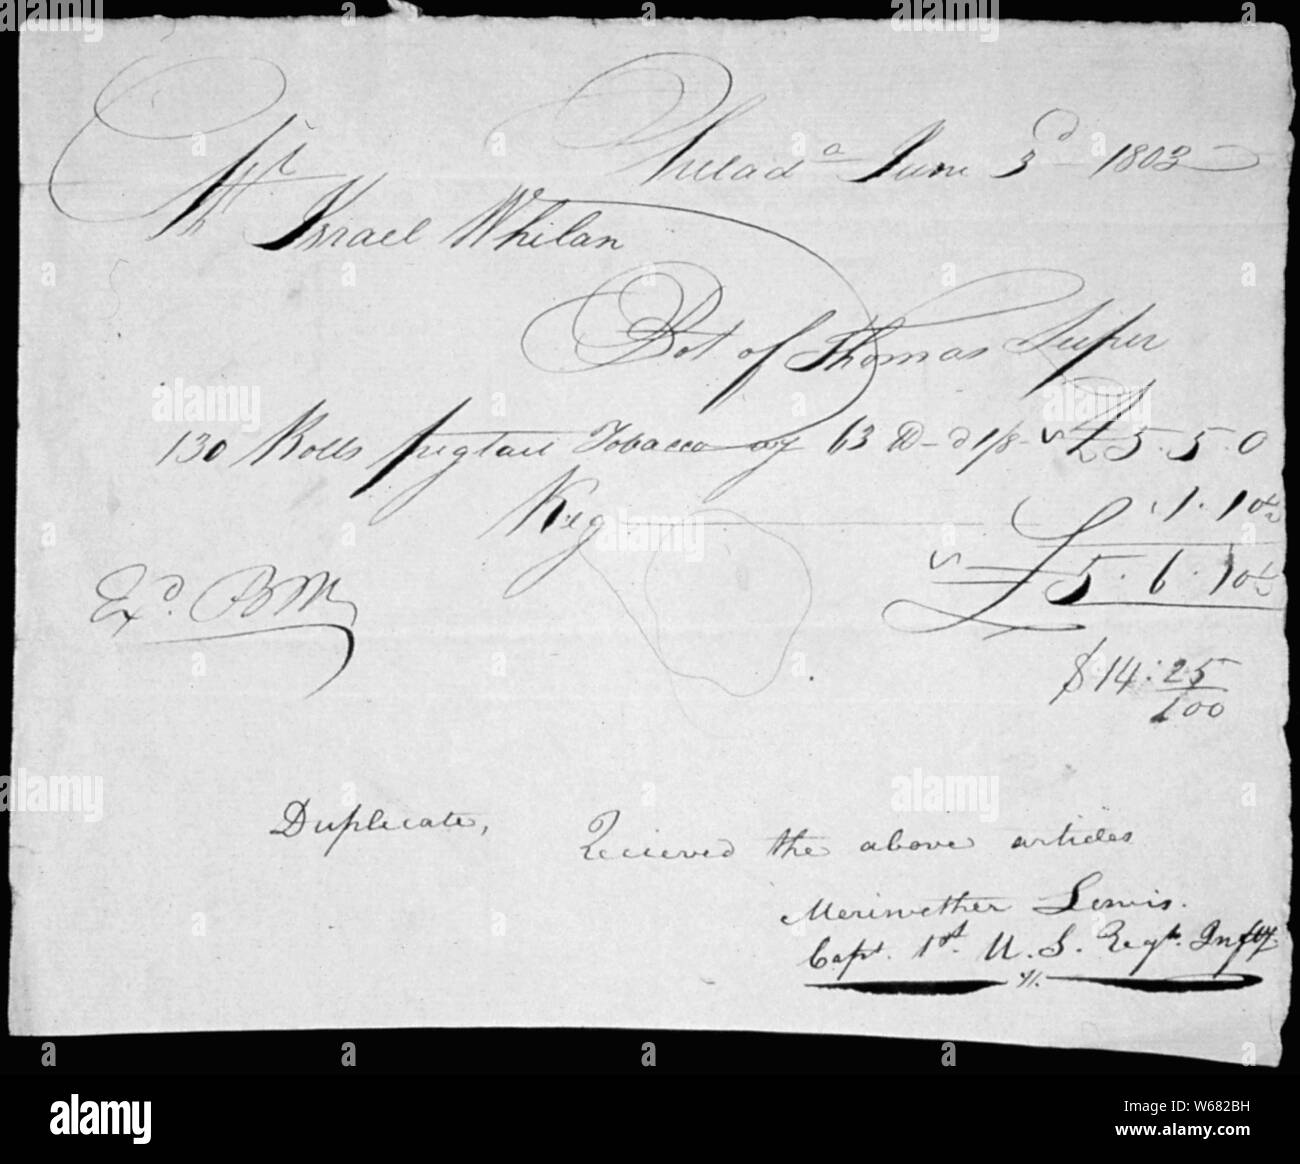 Philad.a June 3d 1803
Mr Israel Whelan
Bot of Thomas Leiper
130 Rolls pigtail Tobacco wy 63 lb @ 1/8 £ 5.5.0
Keg .1.10½
£ 5.6.10½
Exd. BM
$14:25/100
Duplicate, Recieved the above articles
Meriwether Lewis.
Capt. 1st. U. S. Regt. Infty.
alamy
Image ID: W682BH
www.alamy.com